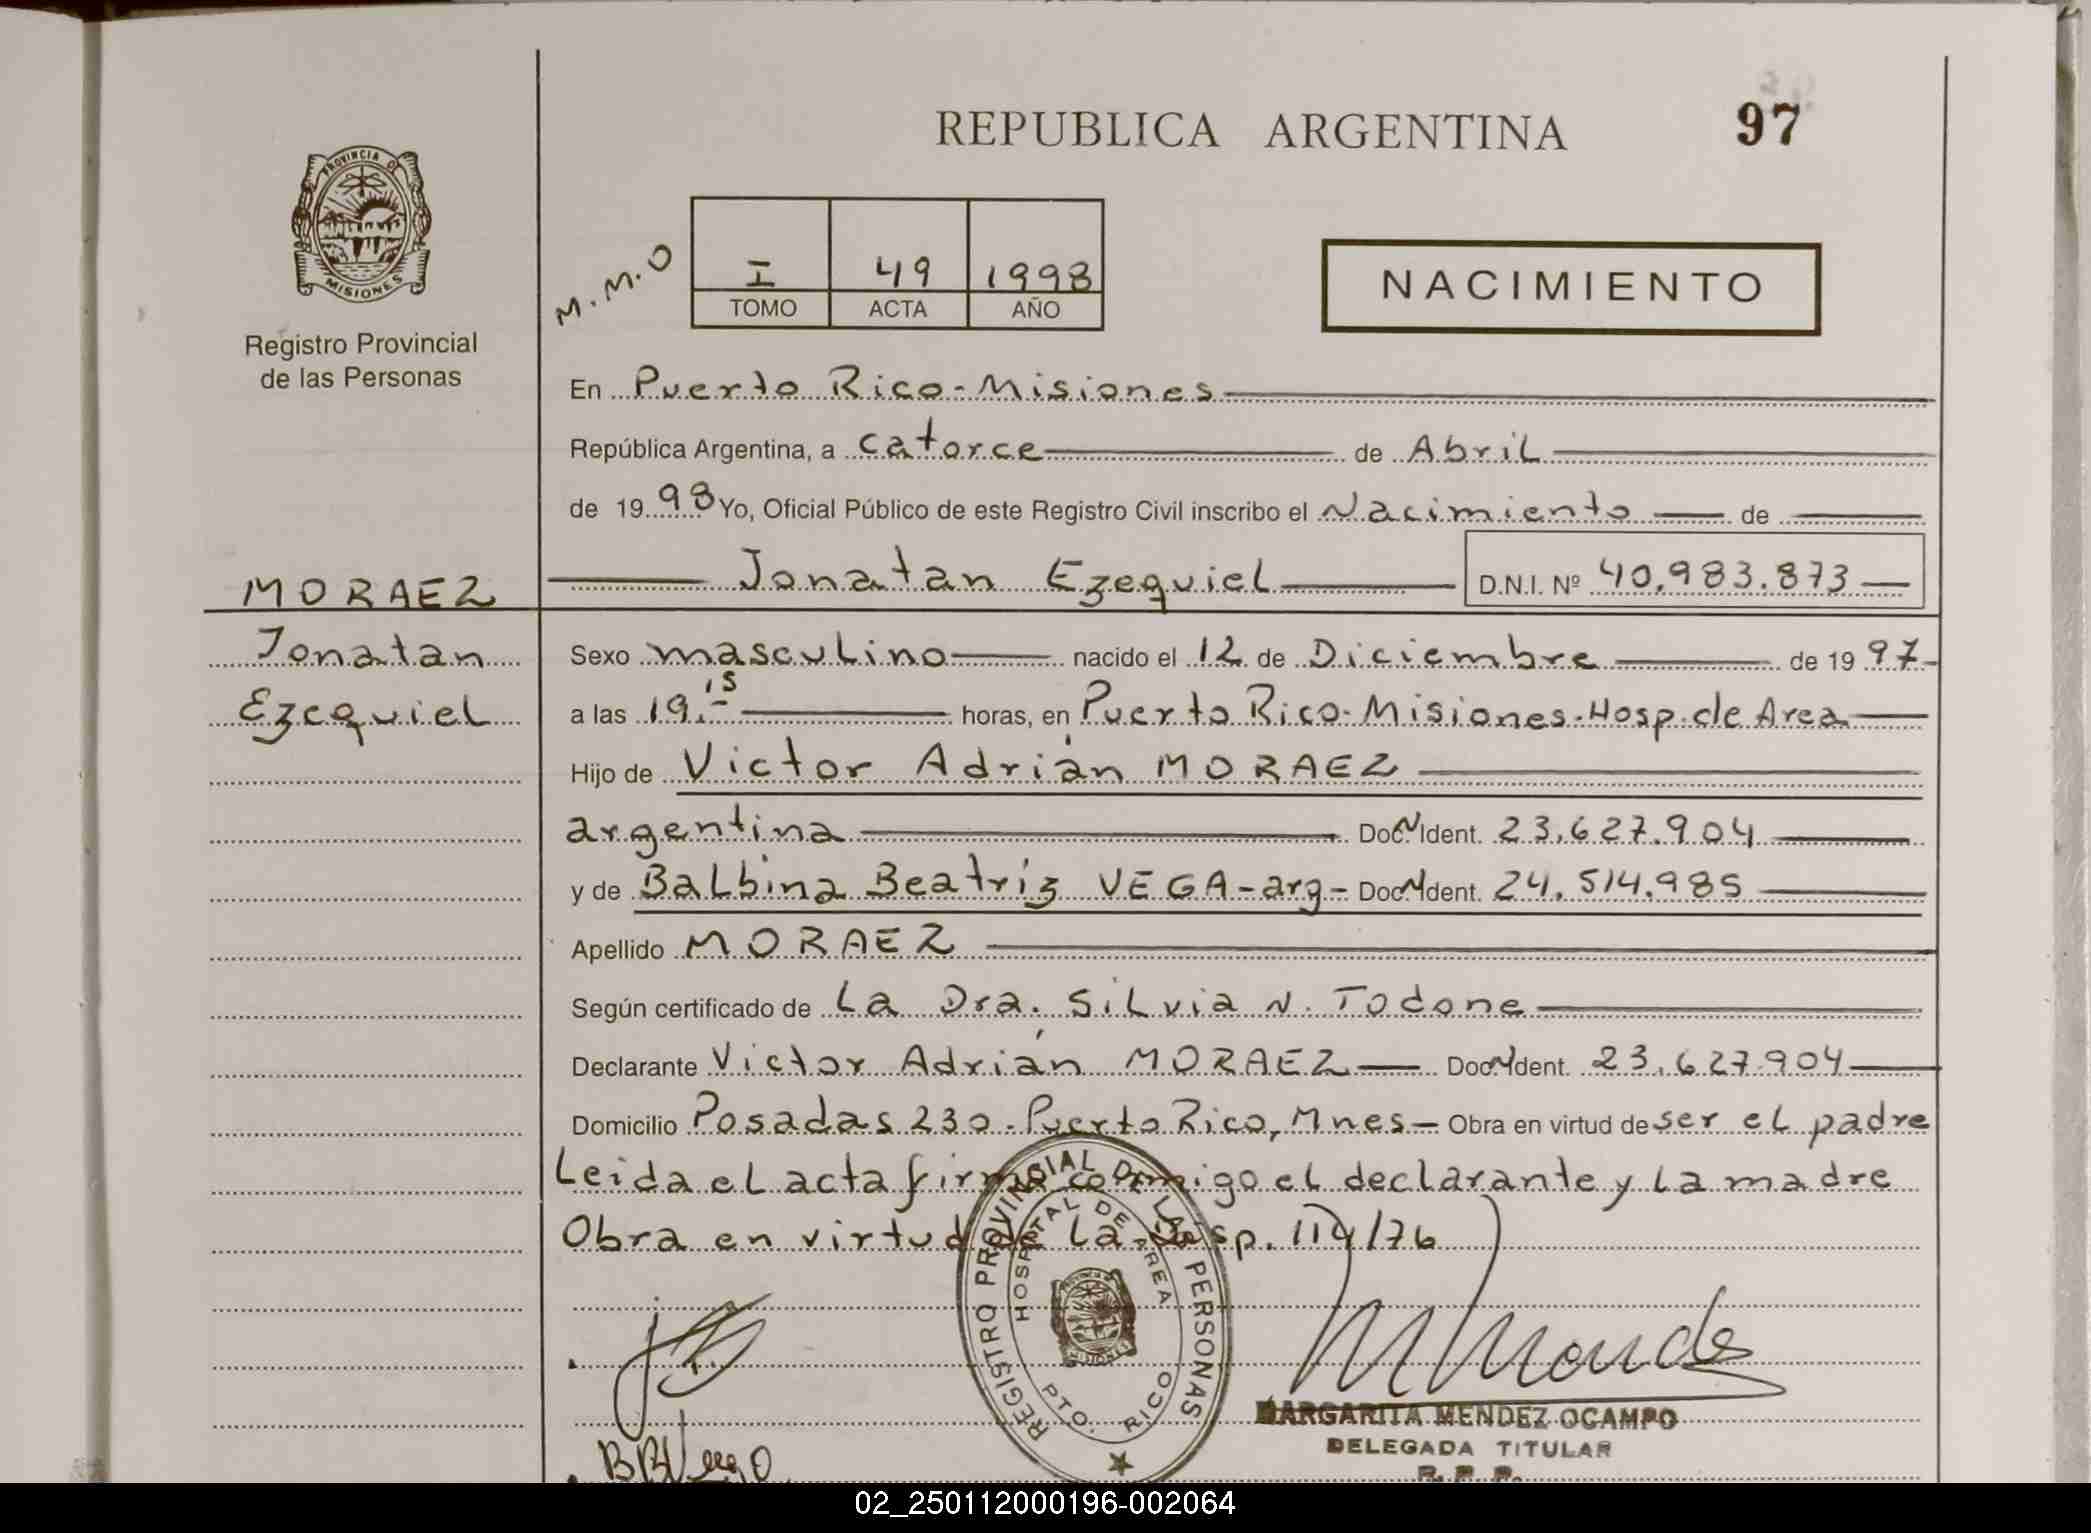 REPUBLICA ARGENTINA
97
PROVINCIA DE
MISIONES
Registro Provincial
de las Personas
M.M.O
I 49 1998
TOMO ACTA AÑO
NACIMIENTO
En Puerto Rico - Misiones
República Argentina, a catorce de Abril
de 1998 Yo, Oficial Público de este Registro Civil inscribo el Nacimiento de
Jonatan Ezequiel D.N.I. Nº 40.983.873
MORAEZ
Jonatan
Ezequiel
Sexo masculino nacido el 12 de Diciembre de 1997
a las 19.15 horas, en Puerto Rico - Misiones - Hosp. de Area
Hijo de Victor Adrián MORAEZ
argentina Doc.N.Ident. 23.627.904
y de Balbina Beatriz VEGA - arg - Doc.N.Ident. 24.514.985
Apellido MORAEZ
Según certificado de La Dra. Silvia N. Todone
Declarante Victor Adrián MORAEZ Doc.N.Ident. 23.627.904
Domicilio Posadas 230 - Puerto Rico, Mnes - Obra en virtud de ser el padre
Leida el acta firma conmigo el declarante y la madre
Obra en virtud de la Disp. 114/76
REGISTRO PROVINCIAL DE LAS PERSONAS
HOSPITAL DE AREA
MISIONES
PTO. RICO
MARGARITA MENDEZ OCAMPO
DELEGADA TITULAR
R.P.P.
02_250112000196-002064